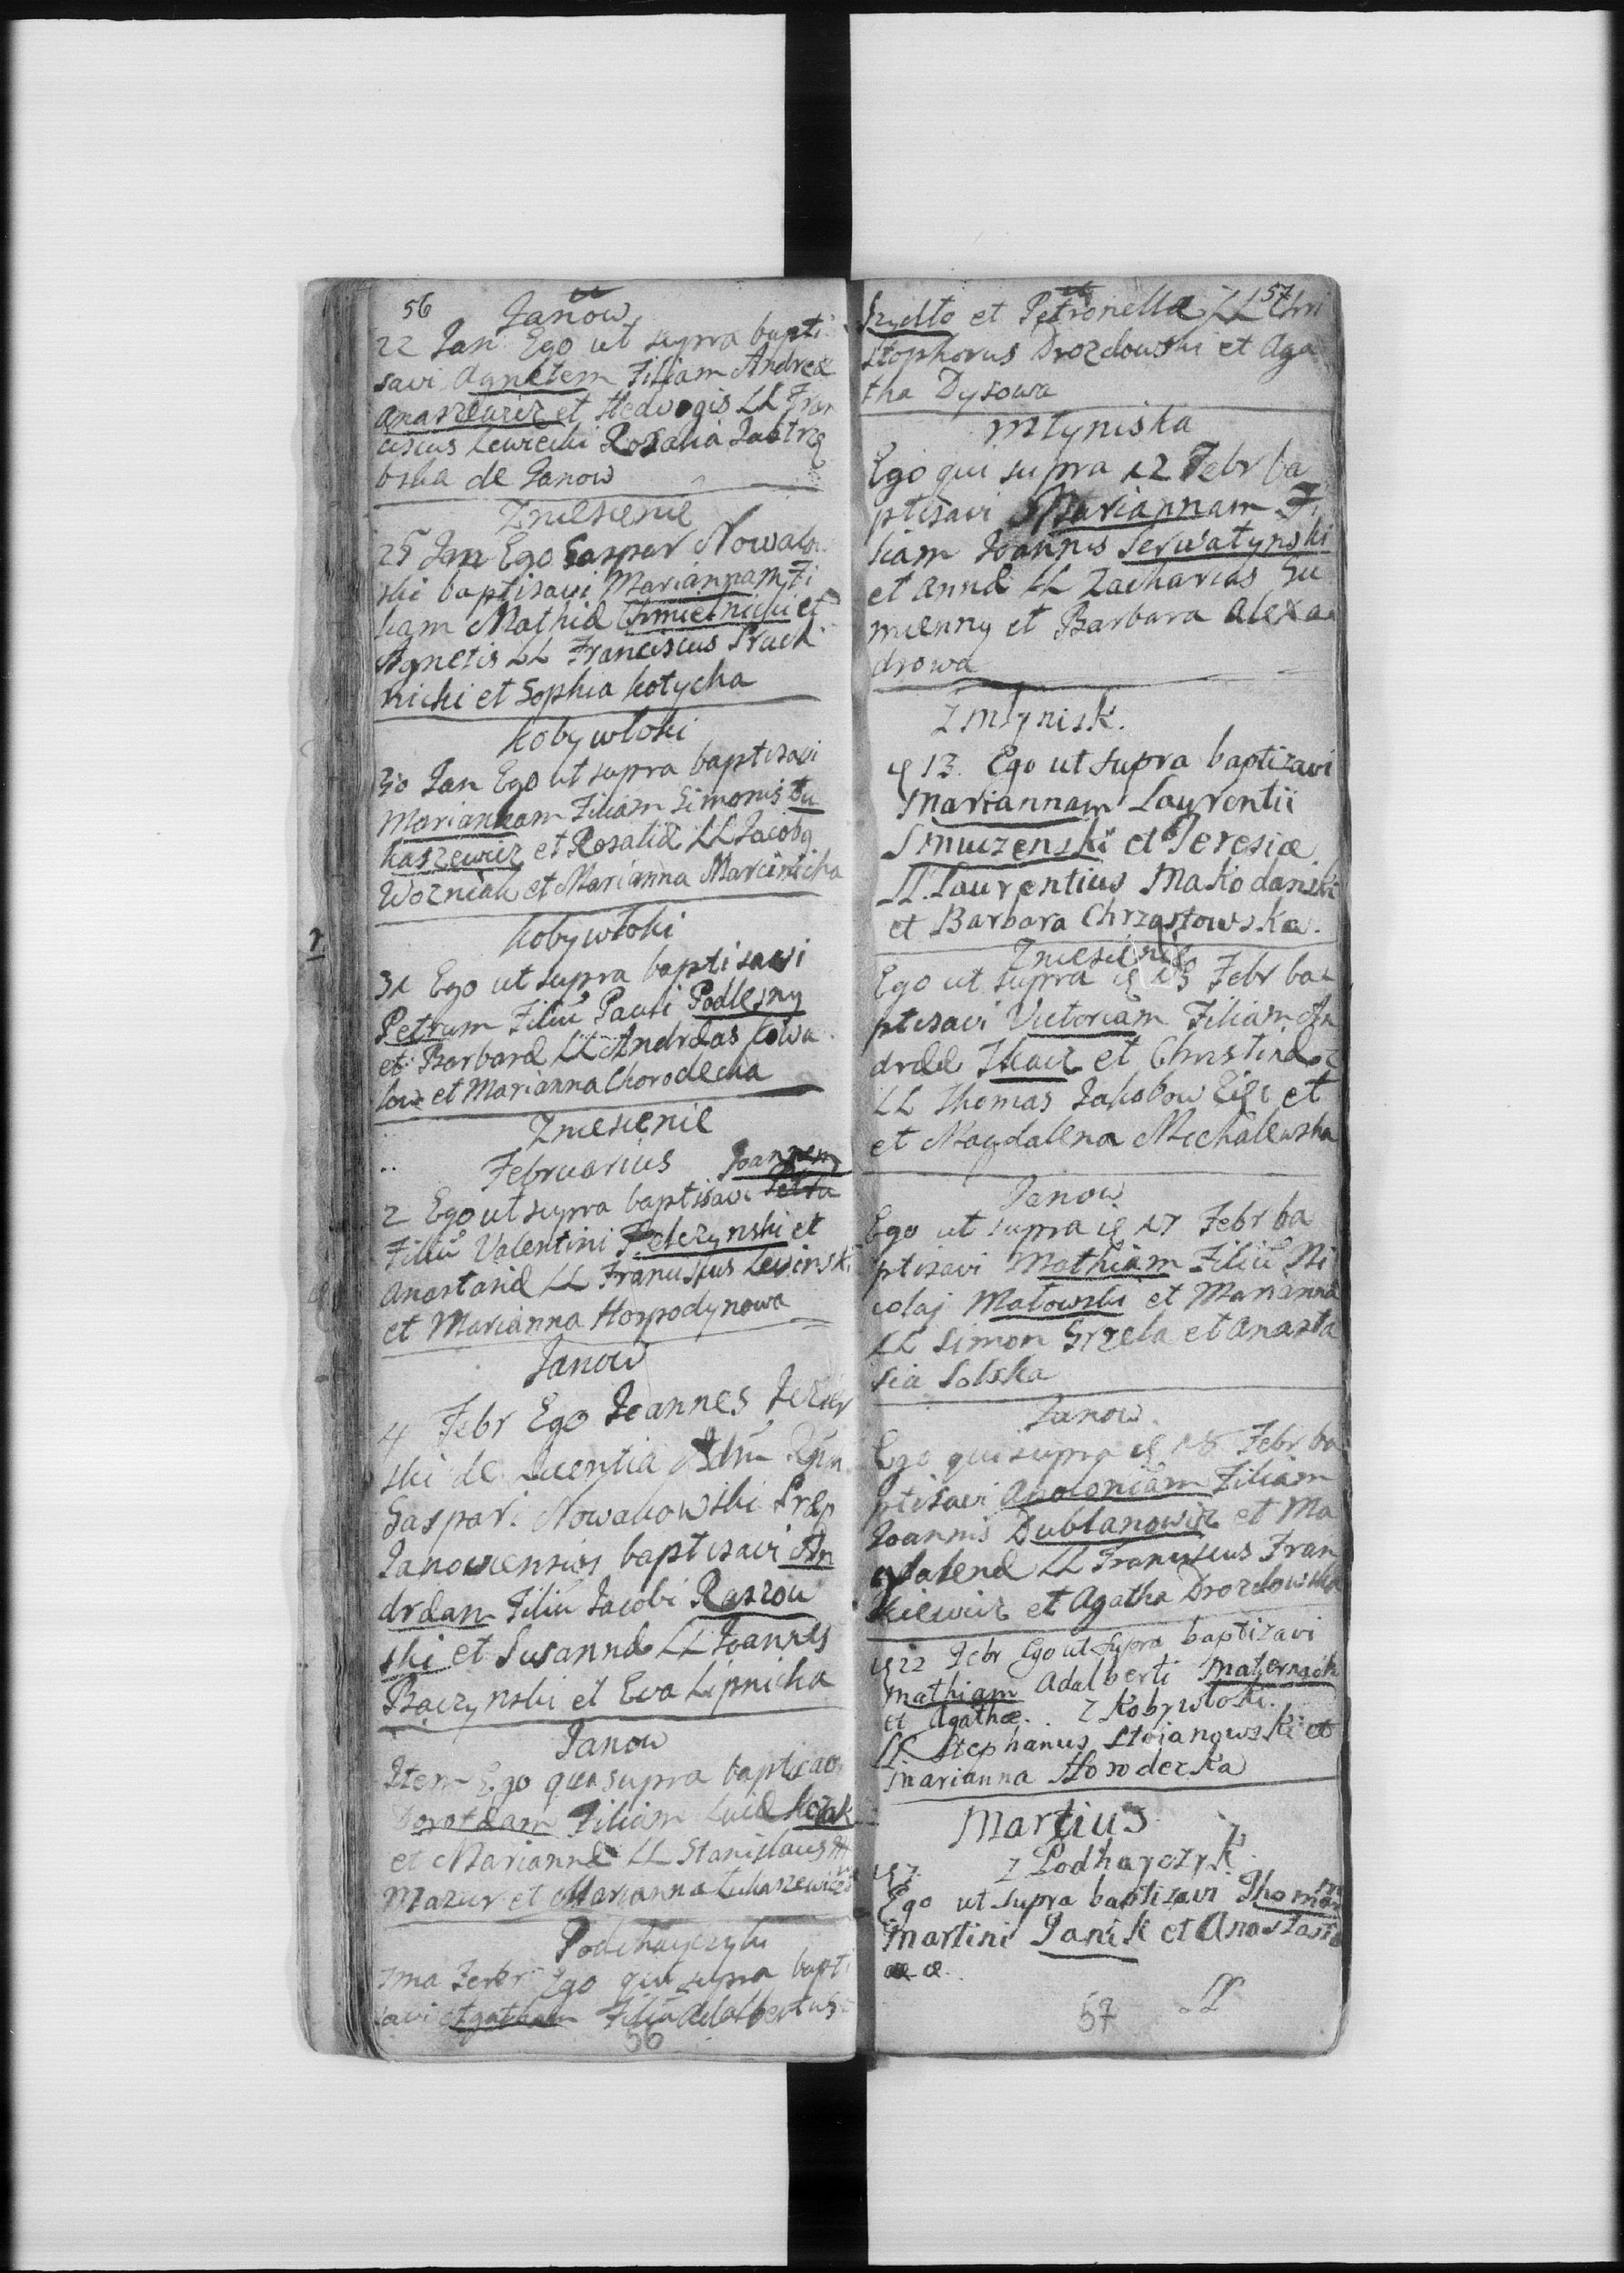 56
Janow
22 Jan Ego ut supra bapti
savi Agnetem Filiam Andreæ
Anaszewicz et Hedvogis LL Fran
ciscus Lewicki Rosalia Jastrzę
bska de Janow
Zniesienie
25 Jan Ego Gaspar Nowakow
ski baptisavi Mariannam Fi
liam Mathiæ Chmielnicki et
Agnetis LL Franciscus Prach
nicki et Sophia Kotycha
Kobywłoki
30 Jan Ego ut supra baptisavi
Mariannam Filiam Simonis Łu
kaszewicz et Rosaliæ LL Jacobg
Wozniak et Marianna Marcinicha
Kobywłoki
31 Ego ut supra baptisavi
Petrum Filiū Pauli Podlesny
et Barbaræ LL Andræas Kowa
low et Marianna Chorodecka
Zniesienie
Februarius Joannem
2 Ego ut supra baptisavi
Filiū Valentini Pelczynski et
Anastasiæ LL Franciscus Lewinski
et Marianna Hospodynowa
Janow
4 Febr Ego Joannes
ski de Licentia
Gaspari Nowakowski Præp
Janoviensies baptisavi An
dræam Filiū Jacobi Raszow
ski et Susannæ LL Joannes
Baczynski et Eva Lipnicka
Janow
Item Ego qui supra baptisavi
Dorotæam Filiam Lucæ Kozak
et Mariannæ LL Stanislaus
Mazur et Marianna Lukaszewicz
Podhayczyki
7ma Febr Ego qui supra bapti
savi Agatham Filiā Adalbertus
56
57
Szydło et Petronellæ LL Chri
stophorus Drozdowski et Aga
tha Dysowa
Młyniska
Ego qui supra 12 Febr ba
ptisavi Mariannam Fi
liam Joannis Serwatynski
et Annæ LL Zacharias Gu
mienny et Barbara Alexa
drowa
Z Młynisk.
13. Ego ut supra baptizavi
Mariannam Laurentii
Smuczenski et Teresiæ
LL. Laurentius Makodanski
et Barbara Chrzastowska.
Zniesienie
Ego ut supra Febr ba
ptisavi Victoriam Filiam An
dreæ Tkacz et Christinæ
LL Thomas Jakobow et
et Magdalena Michalewska
Janow
Ego ut supra 17 Febr ba
ptisavi Mathiam Filiū Ni
colaj Małowski et Mariannæ
LL Simon Grzela et Anasta
sia Solska
Janow.
Ego qui supra 18 Febr ba
ptisavi Apoloniam Filiam
Joannis Dublanowicz et Ma
gdalenæ LL Franciscus Fran
kiewicz et Agatha Drozdowska
22 Febr Ego ut supra baptizavi
Mathiam Adalberti Maternach
et Agathæ. Z Kobywłoki.
LL. Stephanus Stojanowski et
Marianna Horoderka
Martius
Z Podhayczyk.
7.
Ego ut supra baptizavi Thomam
Martini Janik et Anastasi
æ
LL
57